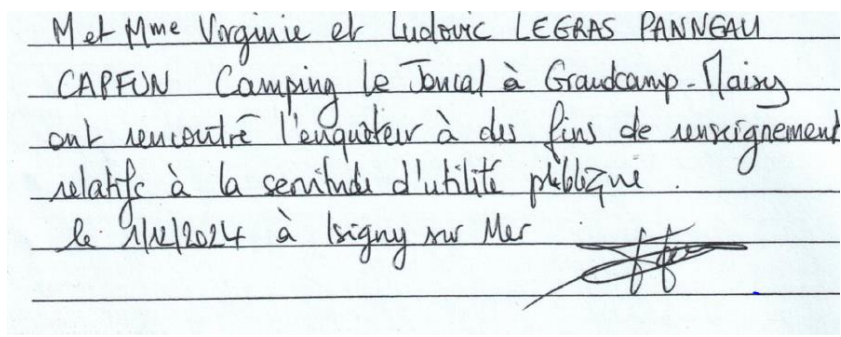 M et Mme Virginie et Ludovic LEGRAS PANNEAU
CAPFUN Camping le Joncal à Grandcamp-Maisy
ont rencontré l'enquêteur à des fins de renseignement
relatifs à la servitude d'utilité publique.
le 1/12/2024 à Isigny sur Mer